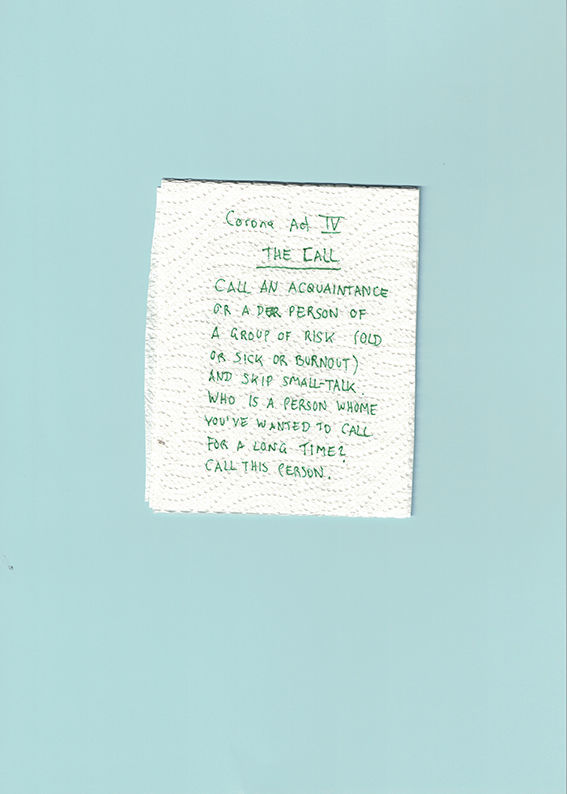 Corona Act IV
THE CALL
CALL AN ACQUAINTANCE
OR A PERSON OF
A GROUP OF RISK (OLD
OR SICK OR BURNOUT)
AND SKIP SMALL-TALK.
WHO IS A PERSON WHOME
YOU'VE WANTED TO CALL
FOR A LONG TIME?
CALL THIS PERSON.